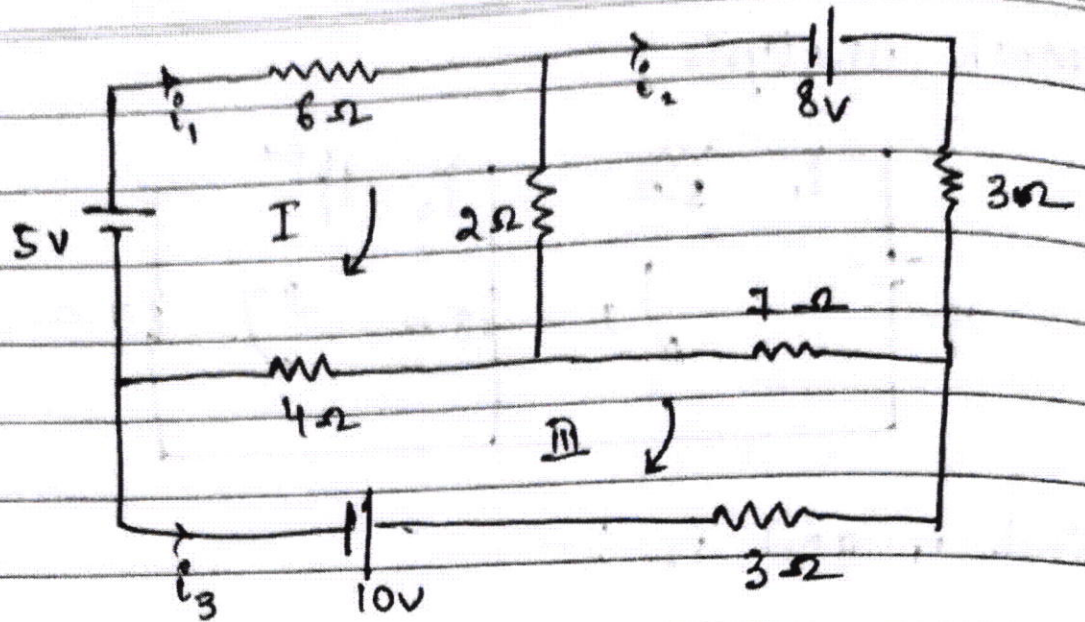 i₁
6Ω
i₂
8V
5V
I
2Ω
3Ω
7Ω
4Ω
III
i₃
10V
3Ω